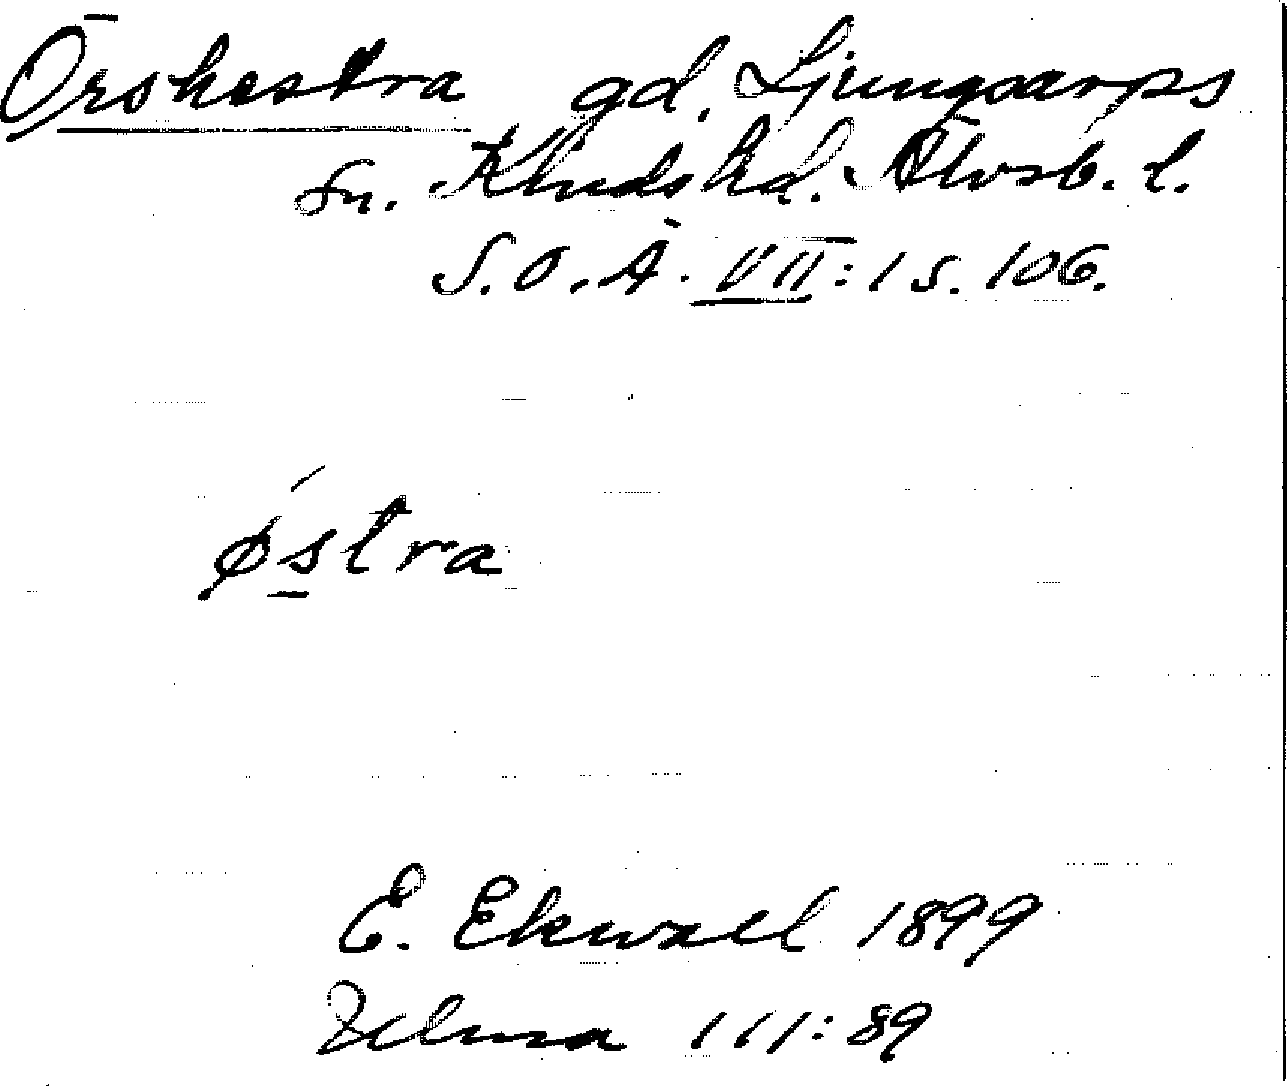 Örshestra gd. Ljungsarps
sn. Kinds hd. Älvsb. l.
S.O.Ä. VII:1 s. 106.
østra
E. Ekwall 1899
Ulma 111:89